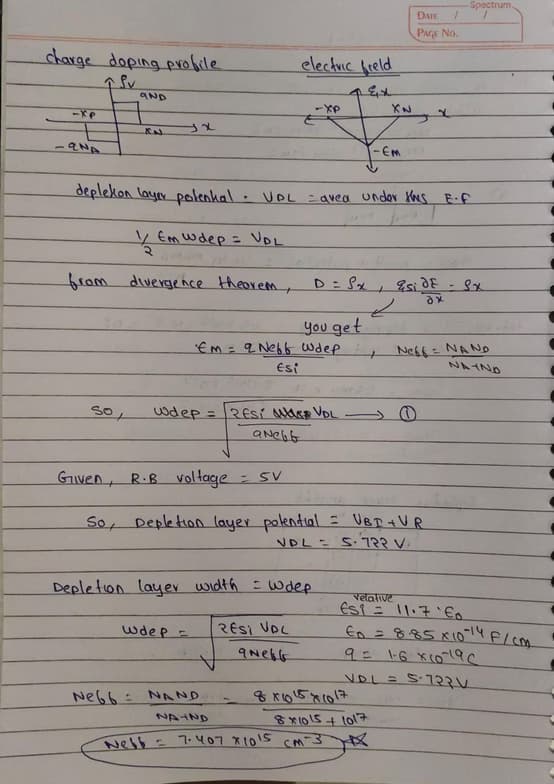 Spectrum
DATE / /
PAGE NO.
charge doping profile
electric field
ρv
qND
-xp
xN
x
-qNA
εx
-xp
xN
x
-Em
depletion layer potential . VDL = area under this E.F
1/2 Em Wdep = VDL
from divergence theorem, D = ρx , εsi ∂E/∂x = ρx
you get
Em = q Neff Wdep / Esi , Neff = NAND / NA+ND
So, Wdep = √(2Esi VDL / qNeff) → ①
Given, R.B voltage = 5V
So, Depletion layer potential = VBI + VR
VDL = 5.722 V.
Depletion layer width = Wdep
relative
Esi = 11.7 · E0
Wdep = √(2Esi VDL / qNeff)
E0 = 8.85 x10-14 F/cm
q = 1.6 x10-19 C
VDL = 5.722V
Neff = NAND / NA+ND = 8x10^15 x10^17 / 8x10^15 + 10^17
Neff = 7.407 x10^15 cm-3